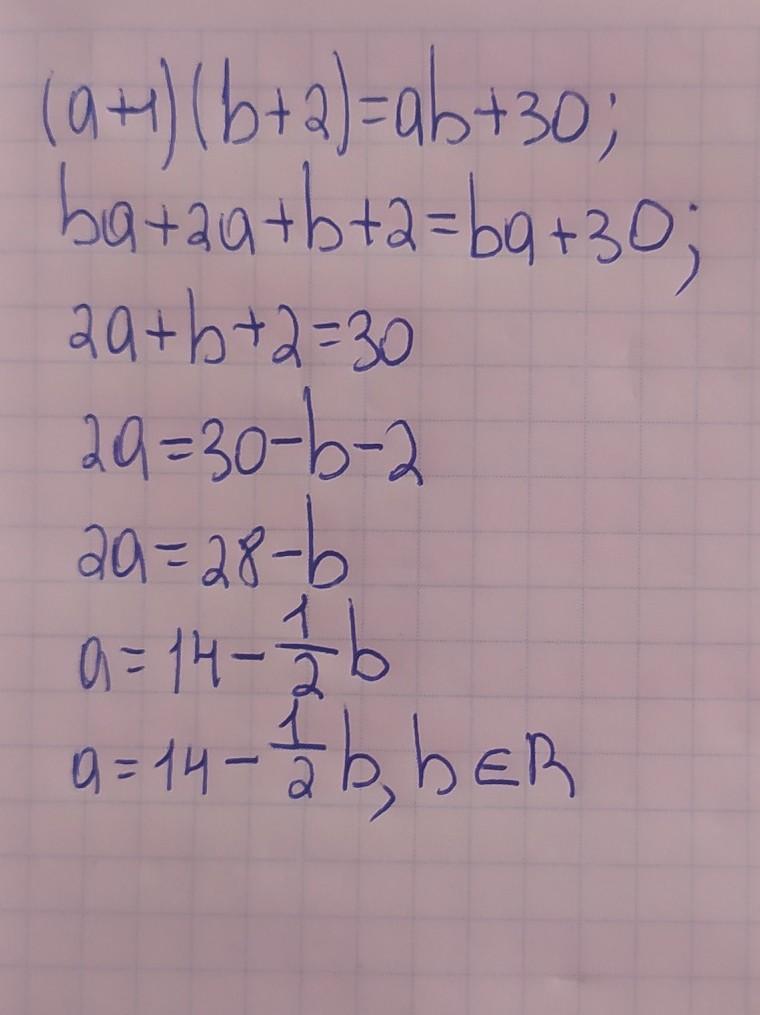 (a+1)(b+2)=ab+30;
ba+2a+b+2=ba+30;
2a+b+2=30
2a=30-b-2
2a=28-b
a=14-\frac{1}{2}b
a=14-\frac{1}{2}b, b∈R